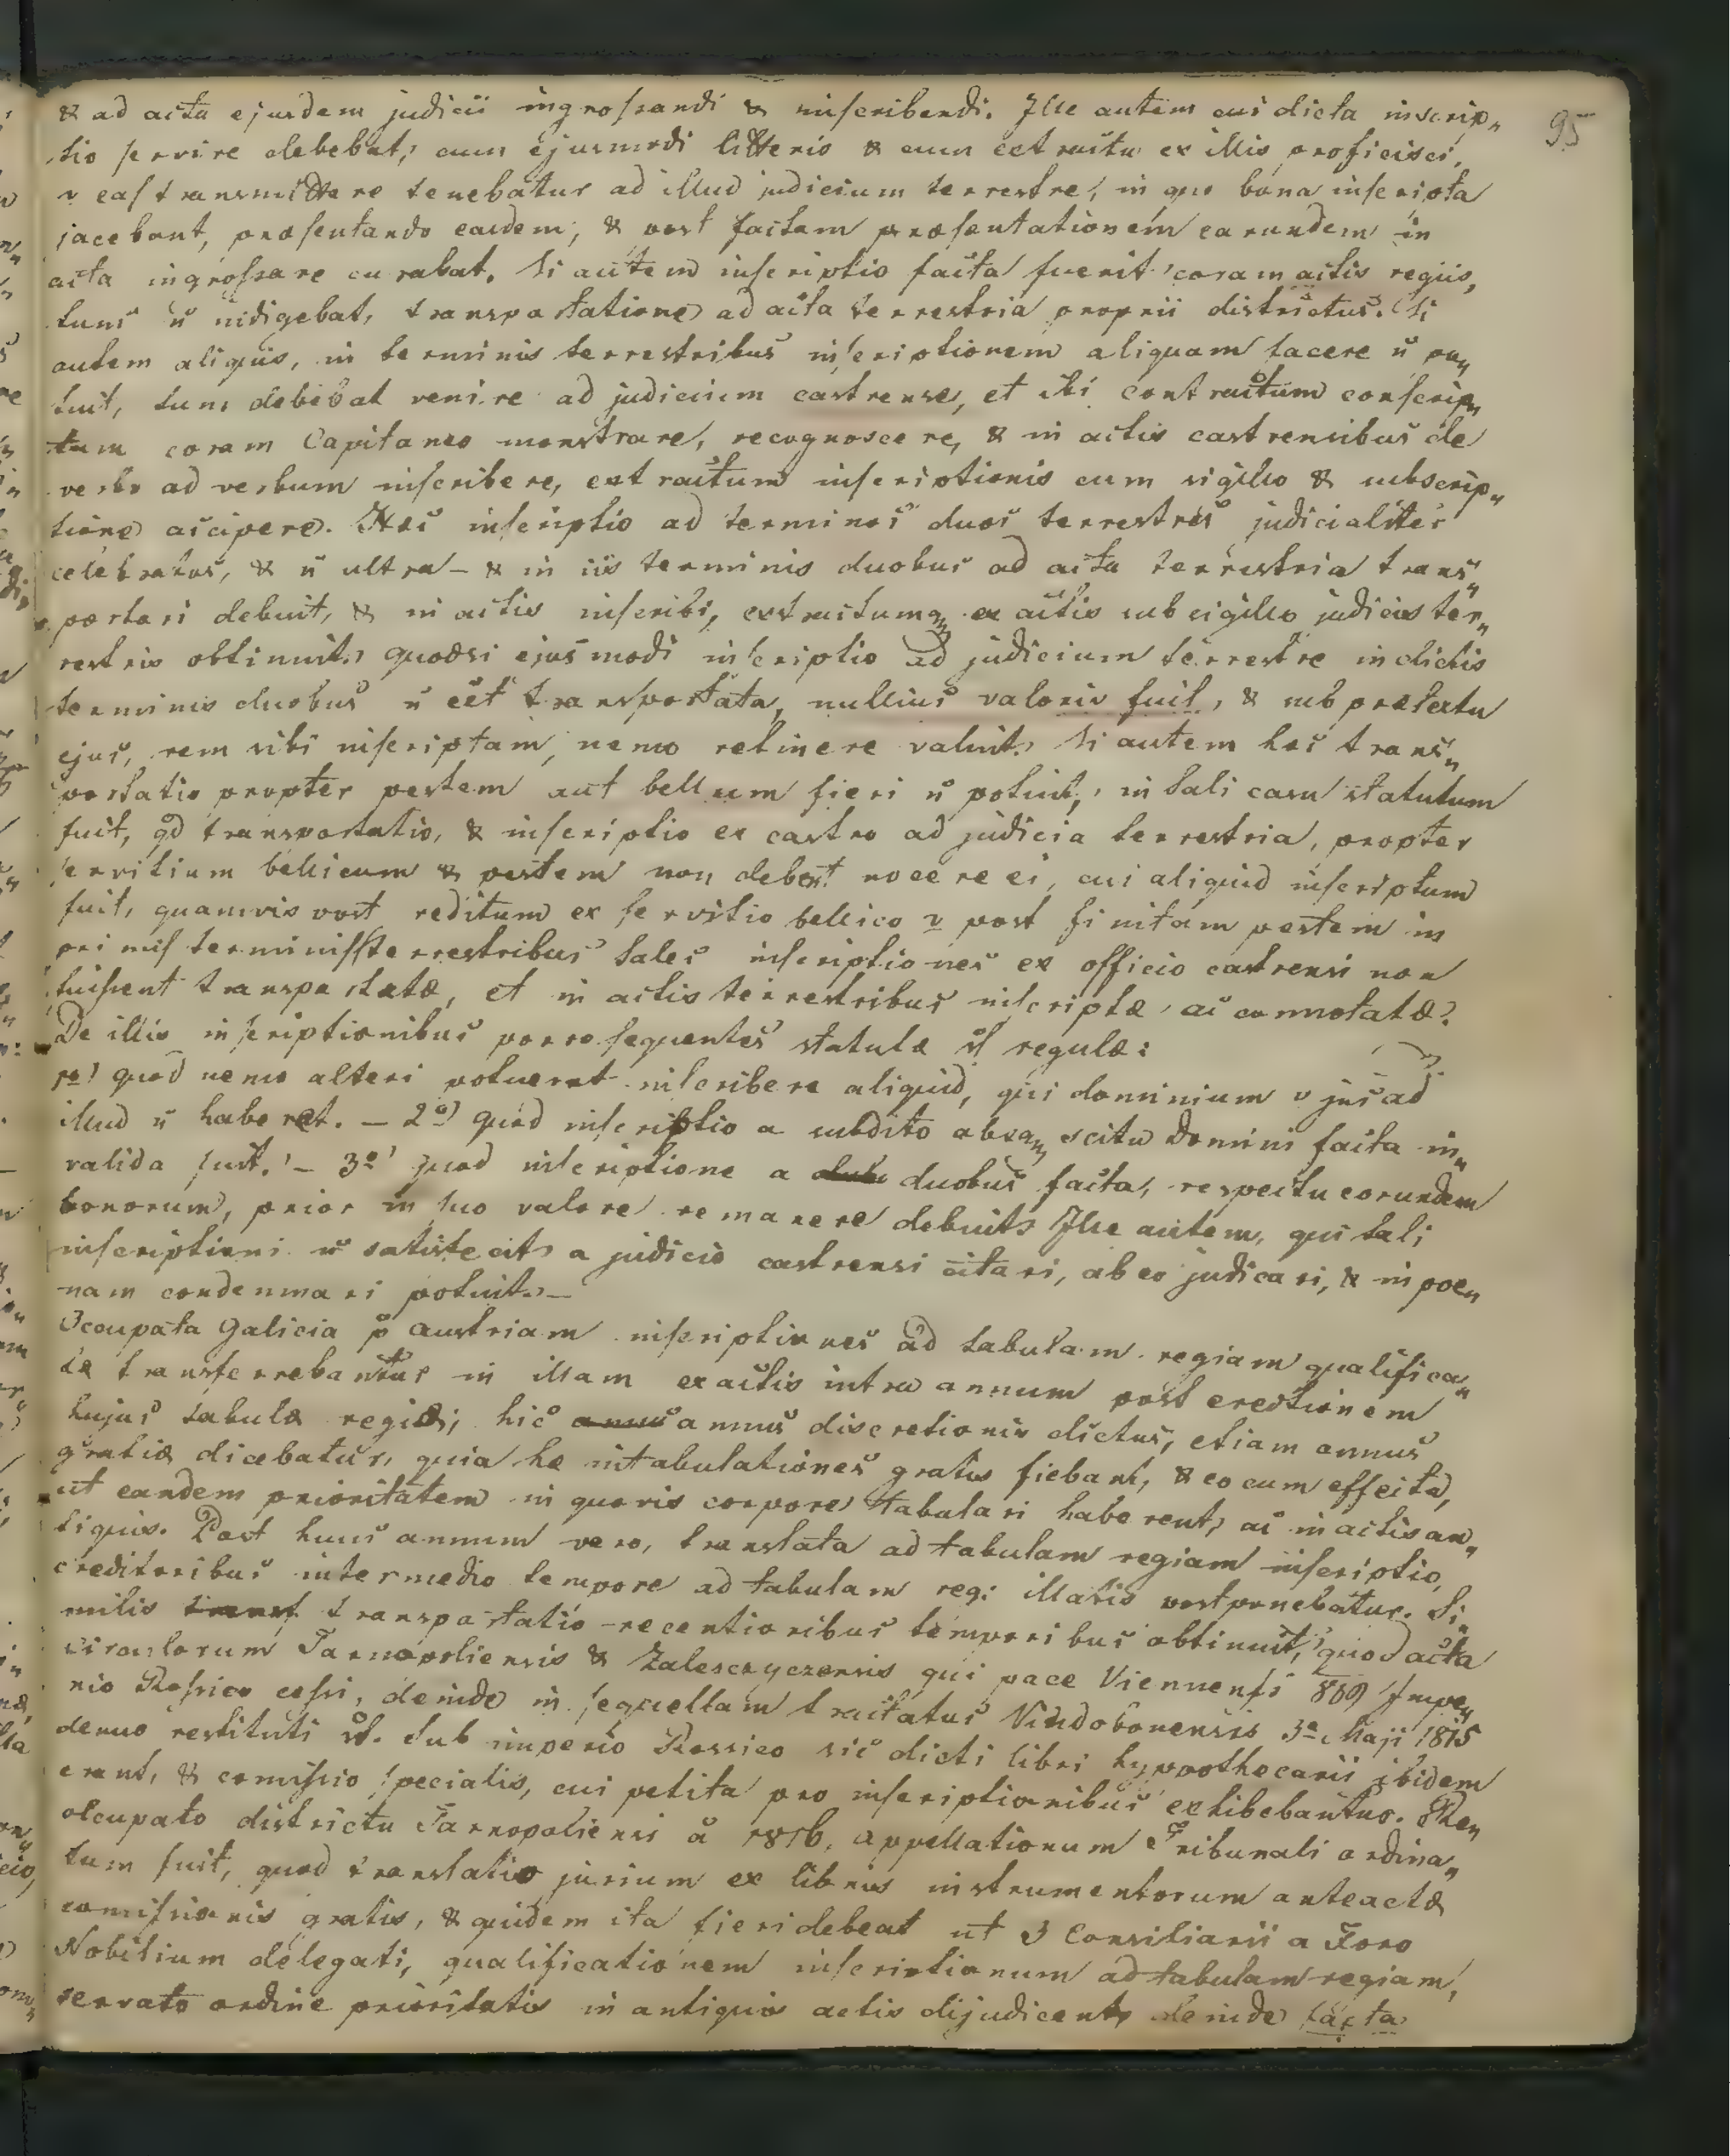 95
& ad acta ejusdem judicii ingrossandi & inscribendi. Ille autem cui dicta inscrip„
tio servire debebat, cum ejusmodi litteris & cum extractu ex illis proficisci,
v eas transmittere tenebatur ad illud judicium terrestre, in quo bona inscripta
jacebant, præsentando easdem, & post factam præsentationem earundem in
acta ingrossare curabat. Si autem inscriptio facta fuerit coram actis regiis,
tunc n̄ indigebat, transportatione ad acta terrestria proprii districtus. Si
autem aliquis, in terminis terrestribus inscriptionem aliquam facere n̄ po„
tuit, tum debebat venire ad judicium castrense, et ibi contractum conscrip„
tum coram Capitaneo monstrare, recognoscere, & in actis castrensibus de
verbo ad verbum inscribere, extractum inscriptionis cum sigillo & subscrip„
tione accipere. Hæc inscriptio ad terminos duos terrestres judicialiter
celebratos, & n̄ ultra – & in iis terminis duobus ad acta terrestria trans„
portari debuit, & in actis inscribi, extractumq ex actis sub sigillo judicis ter„
restris obtinuit. quodsi ejusmodi inscriptio ad judicium terrestre in dictis
terminis duobus n̄ eēt transportata, nullius valoris fuit, & sub prætextu
ejus, rem sibi inscriptam, nemo retinere valuit. Si autem hæc trans„
portatio propter pestem aut bellum fieri n̄ potuit, in tali casu statutum
fuit, qd transportatio, & inscriptio ex castro ad judicia terrestria, propter
servitium bellicum & pestem non debeat nocere ei, cui aliquid inscriptum
fuit, quamvis post reditum ex servitio bellico v post finitam pestem in
primis terminis terrestribus tales inscriptiones ex officio castrensi non
fuissent transportatæ, et in actis terrestribus inscriptæ ac connotatæ.
De illis inscriptionibus porro sequentes statutæ st regulæ:
1o) quod nemo alteri potuerat inscribere aliquid, qui dominium v jus ad
illud n̄ haberet. – 2o) quod inscriptio a subdito absq scitu Domini facta in„
valida fuit. – 3o) quod inscriptione a dub duobus facta, respectu eorundem
bonorum, prior in suo valore remanere debuit. Ille autem, qui tali
inscriptioni n̄ satisfecit, a judicio castrensi citari, ab eo judicari, & in poe„
nam condemnari potuit. –
Occupata Galicia p Austriam inscriptiones ad tabulam regiam qualifica„
tæ transferrebantur in illam ex actis intra annum post erectionem
hujus tabulæ regiæ; hic annus annus discretionis dictus, etiam annus
gratiæ dicebatur, quia hæ intabulationes gratis fiebant, & eo cum effectu,
ut eandem prioritatem in quovis corpore tabulari haberent, ac in actis an„
tiquis. Post hunc annum vero, translata ad tabulam regiam inscriptio,
creditoribus intermedio tempore ad tabulam reg: illatis postponebatur. Si„
milis transf transportatio recentioribus temporibus obtinuit, quod acta
circulorum Tarnopoliensis & Zalesczyczensis qui pace Viennensi 809 Impe„
rio Rossico cessi, deinde in sequellam tractatus Vindobonensis 3a Maji 1815
denuo restituti st. Sub imperio Rossico sic dicti libri hypothecarii ibidem
erant, & comissio specialis, cui petita pro inscriptionibus exhibebantur. Re„
occupato districtu Tarnopoliensi a 1816. Appellationum Tribunali ordina„
tum fuit, quod translatio jurium ex libris instrumentorum anteactæ
comissionis gratis, & quidem ita fieri debeat ut 3 Consiliarii a Foro
Nobilium delegati, qualificationem inscriptionum ad tabulam regiam,
servato ordine prioritatis in antiquis actis dijudicent, deinde facta